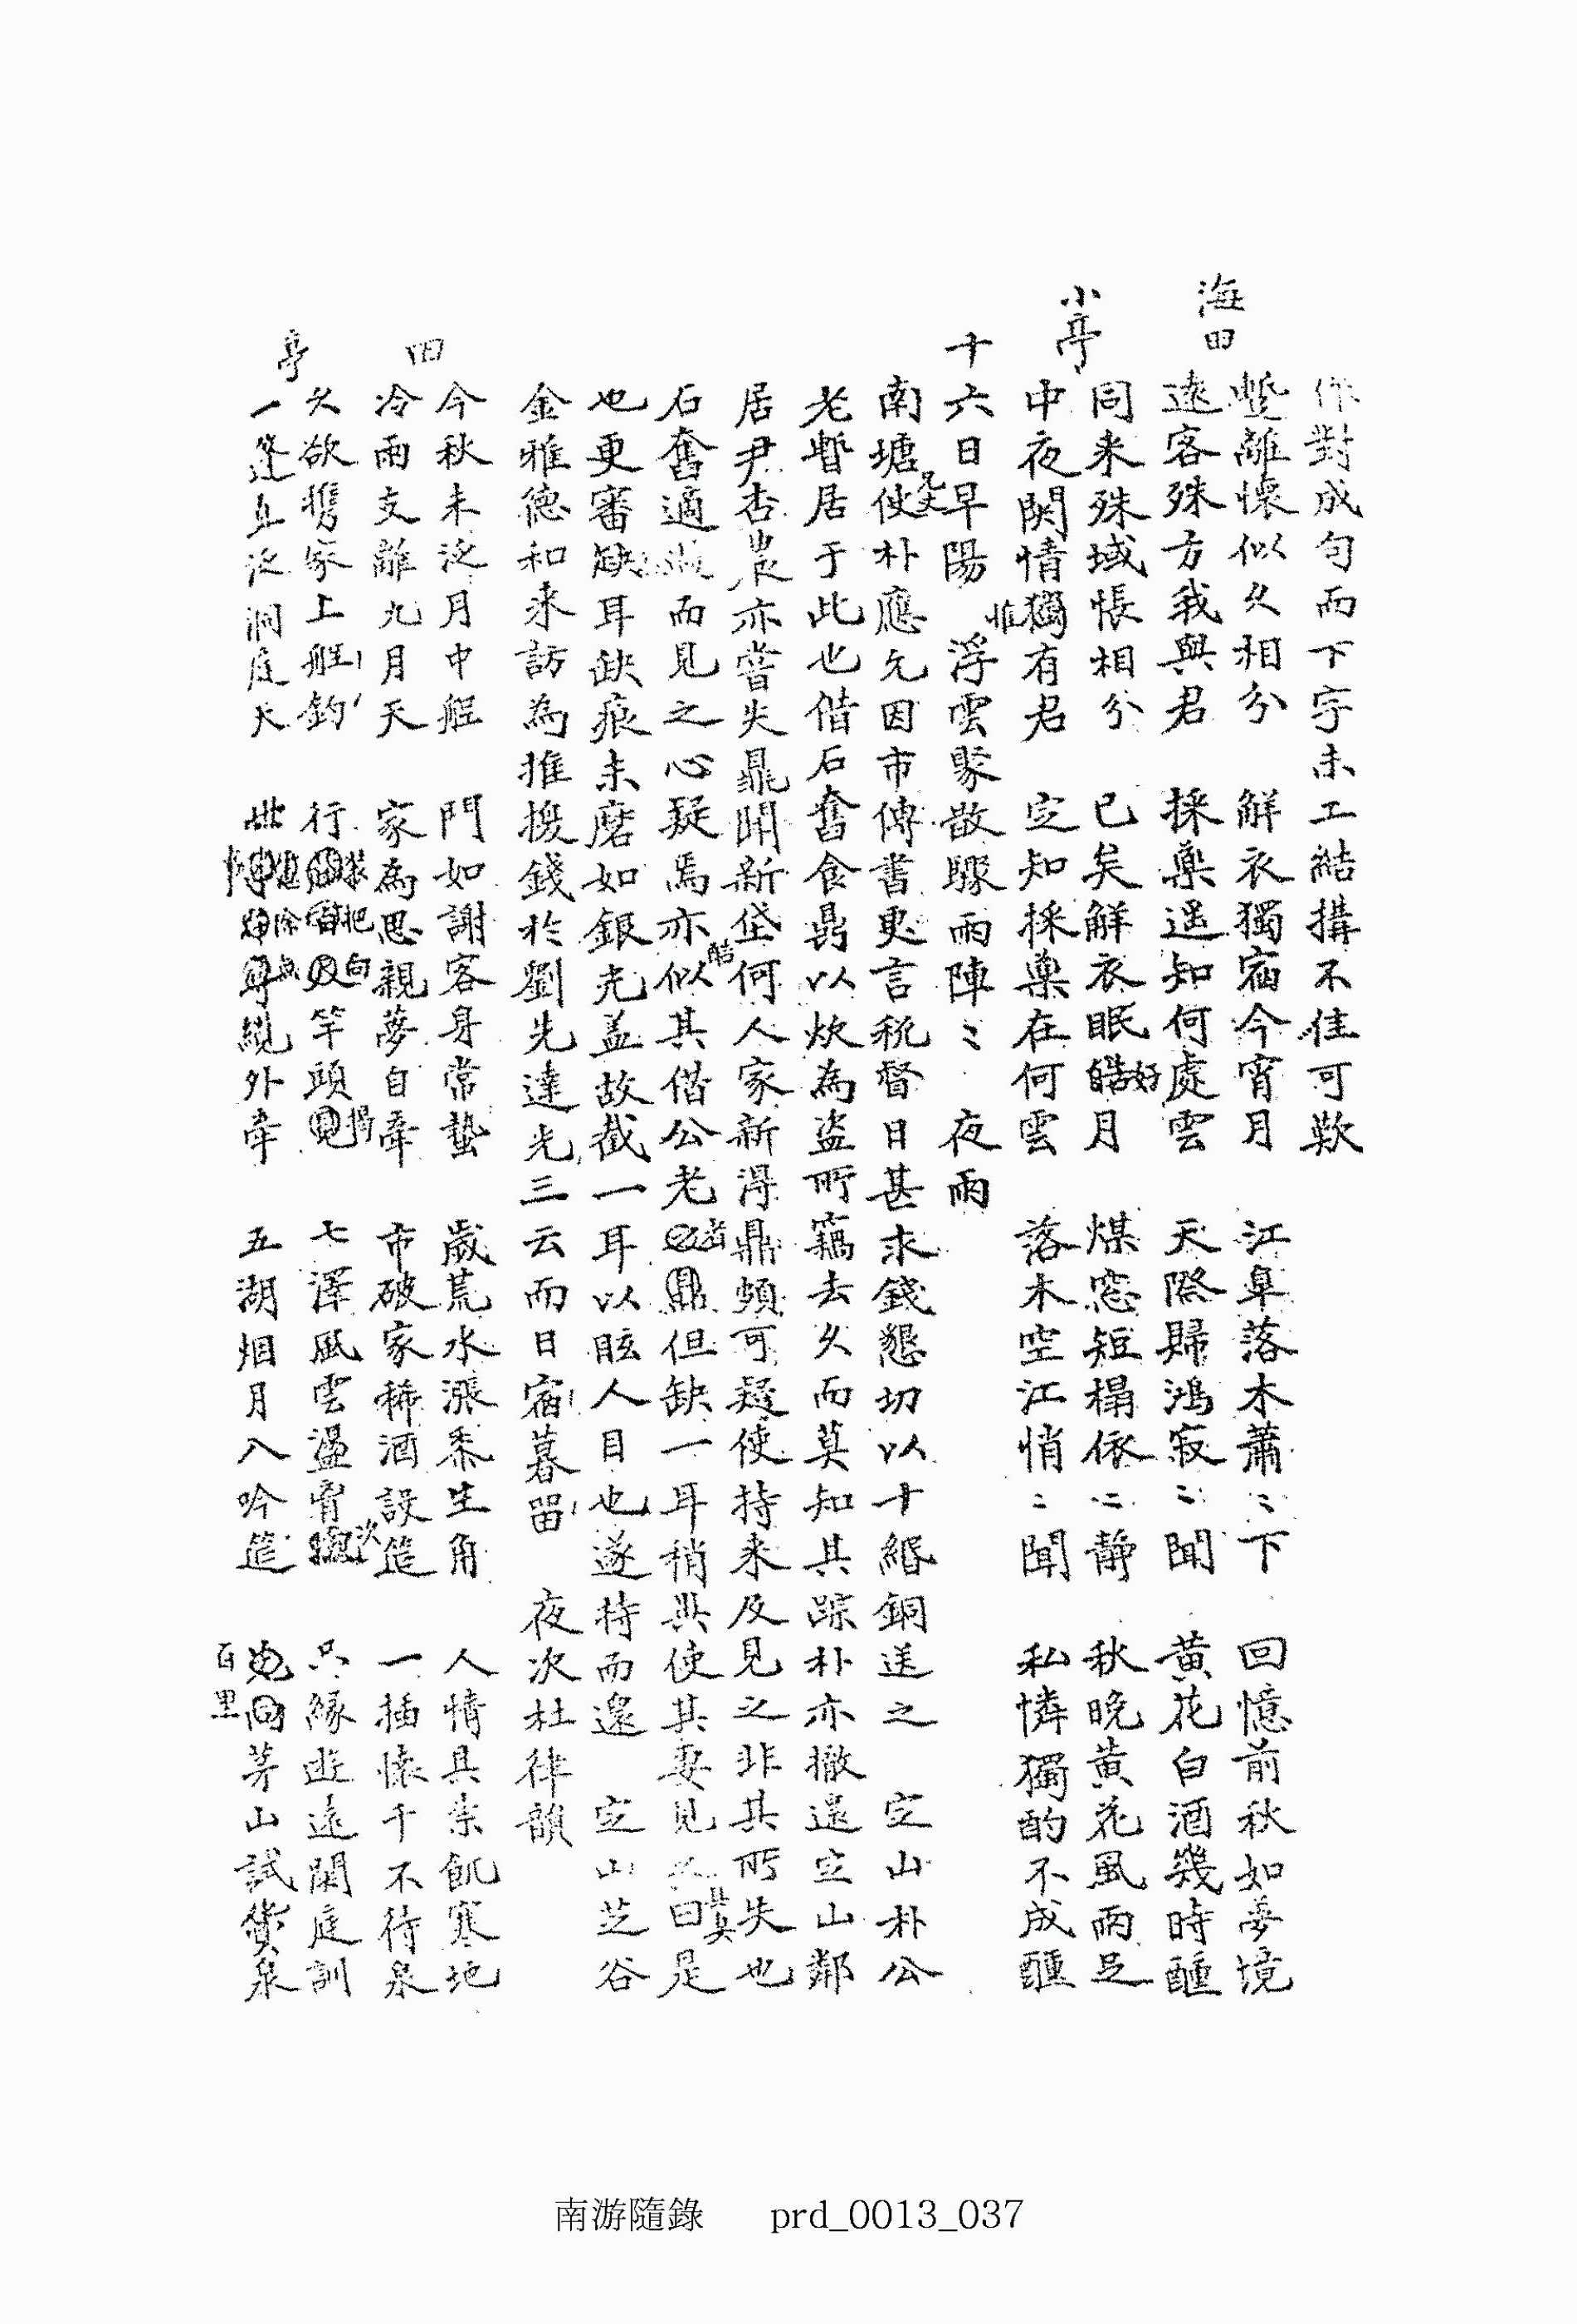 作對成句而下字未工結搆不佳可歎
海田
暫離懷似久相分 解衣獨宿今宵月 江皐落木蕭〻下 回憶前秋如夢境
遠客殊方我與君 採藥遥知何處雲 天際歸鴻寂〻聞 黃花白酒幾時醺
小亭
同来殊域悵相分 已矣解衣眠皓好月 煤窓短榻依〻静 秋晩黃花風雨足
中夜関情獨惟有君 定知採藥在何雲 落木空江悄〻聞 私憐獨酌不成醺
十六日早陽 浮雲聚散驟雨陣〻 夜雨
南塘兄使朴應允因市傳書更言税督日甚求錢懇切以十緡銅送之 定山朴公
老暫居于此也偕石奮食鼎以炊為盗所竊去久而莫知其踪朴亦撤還定山鄰
居尹杏農亦嘗失鼎聞新垈何人家新得鼎頗可疑使持来及見之非其所失也
石奮適而見之心疑焉亦酷似其偕公老者鼎但缺一耳稍異使其妻見其夫曰是
也更審缺耳缺痕未磨如銀光盖故截一耳以眩人目也遂持而還 定山芝谷
金雅德和来訪為推援錢於劉先達光三云而日宿暮留 夜次杜律韻
田
今秋未泛月中舡 門如謝客身常蟄 歲荒水漲黍生角 人情具柴飢寒地
冷雨支離九月天 家為思親夢自牽 市破家稀酒設筵 一插懐千不待泉
亭
久欲携家上舡釣 行裝把向竿頭揭 七澤風雲盪胷次 只縁遊遠闕庭訓
一篷直泛洞庭天 世慮除点絶外牽 五湖烟月入吟筵 百里茅山試貨泉
南游隨錄 prd_0013_037